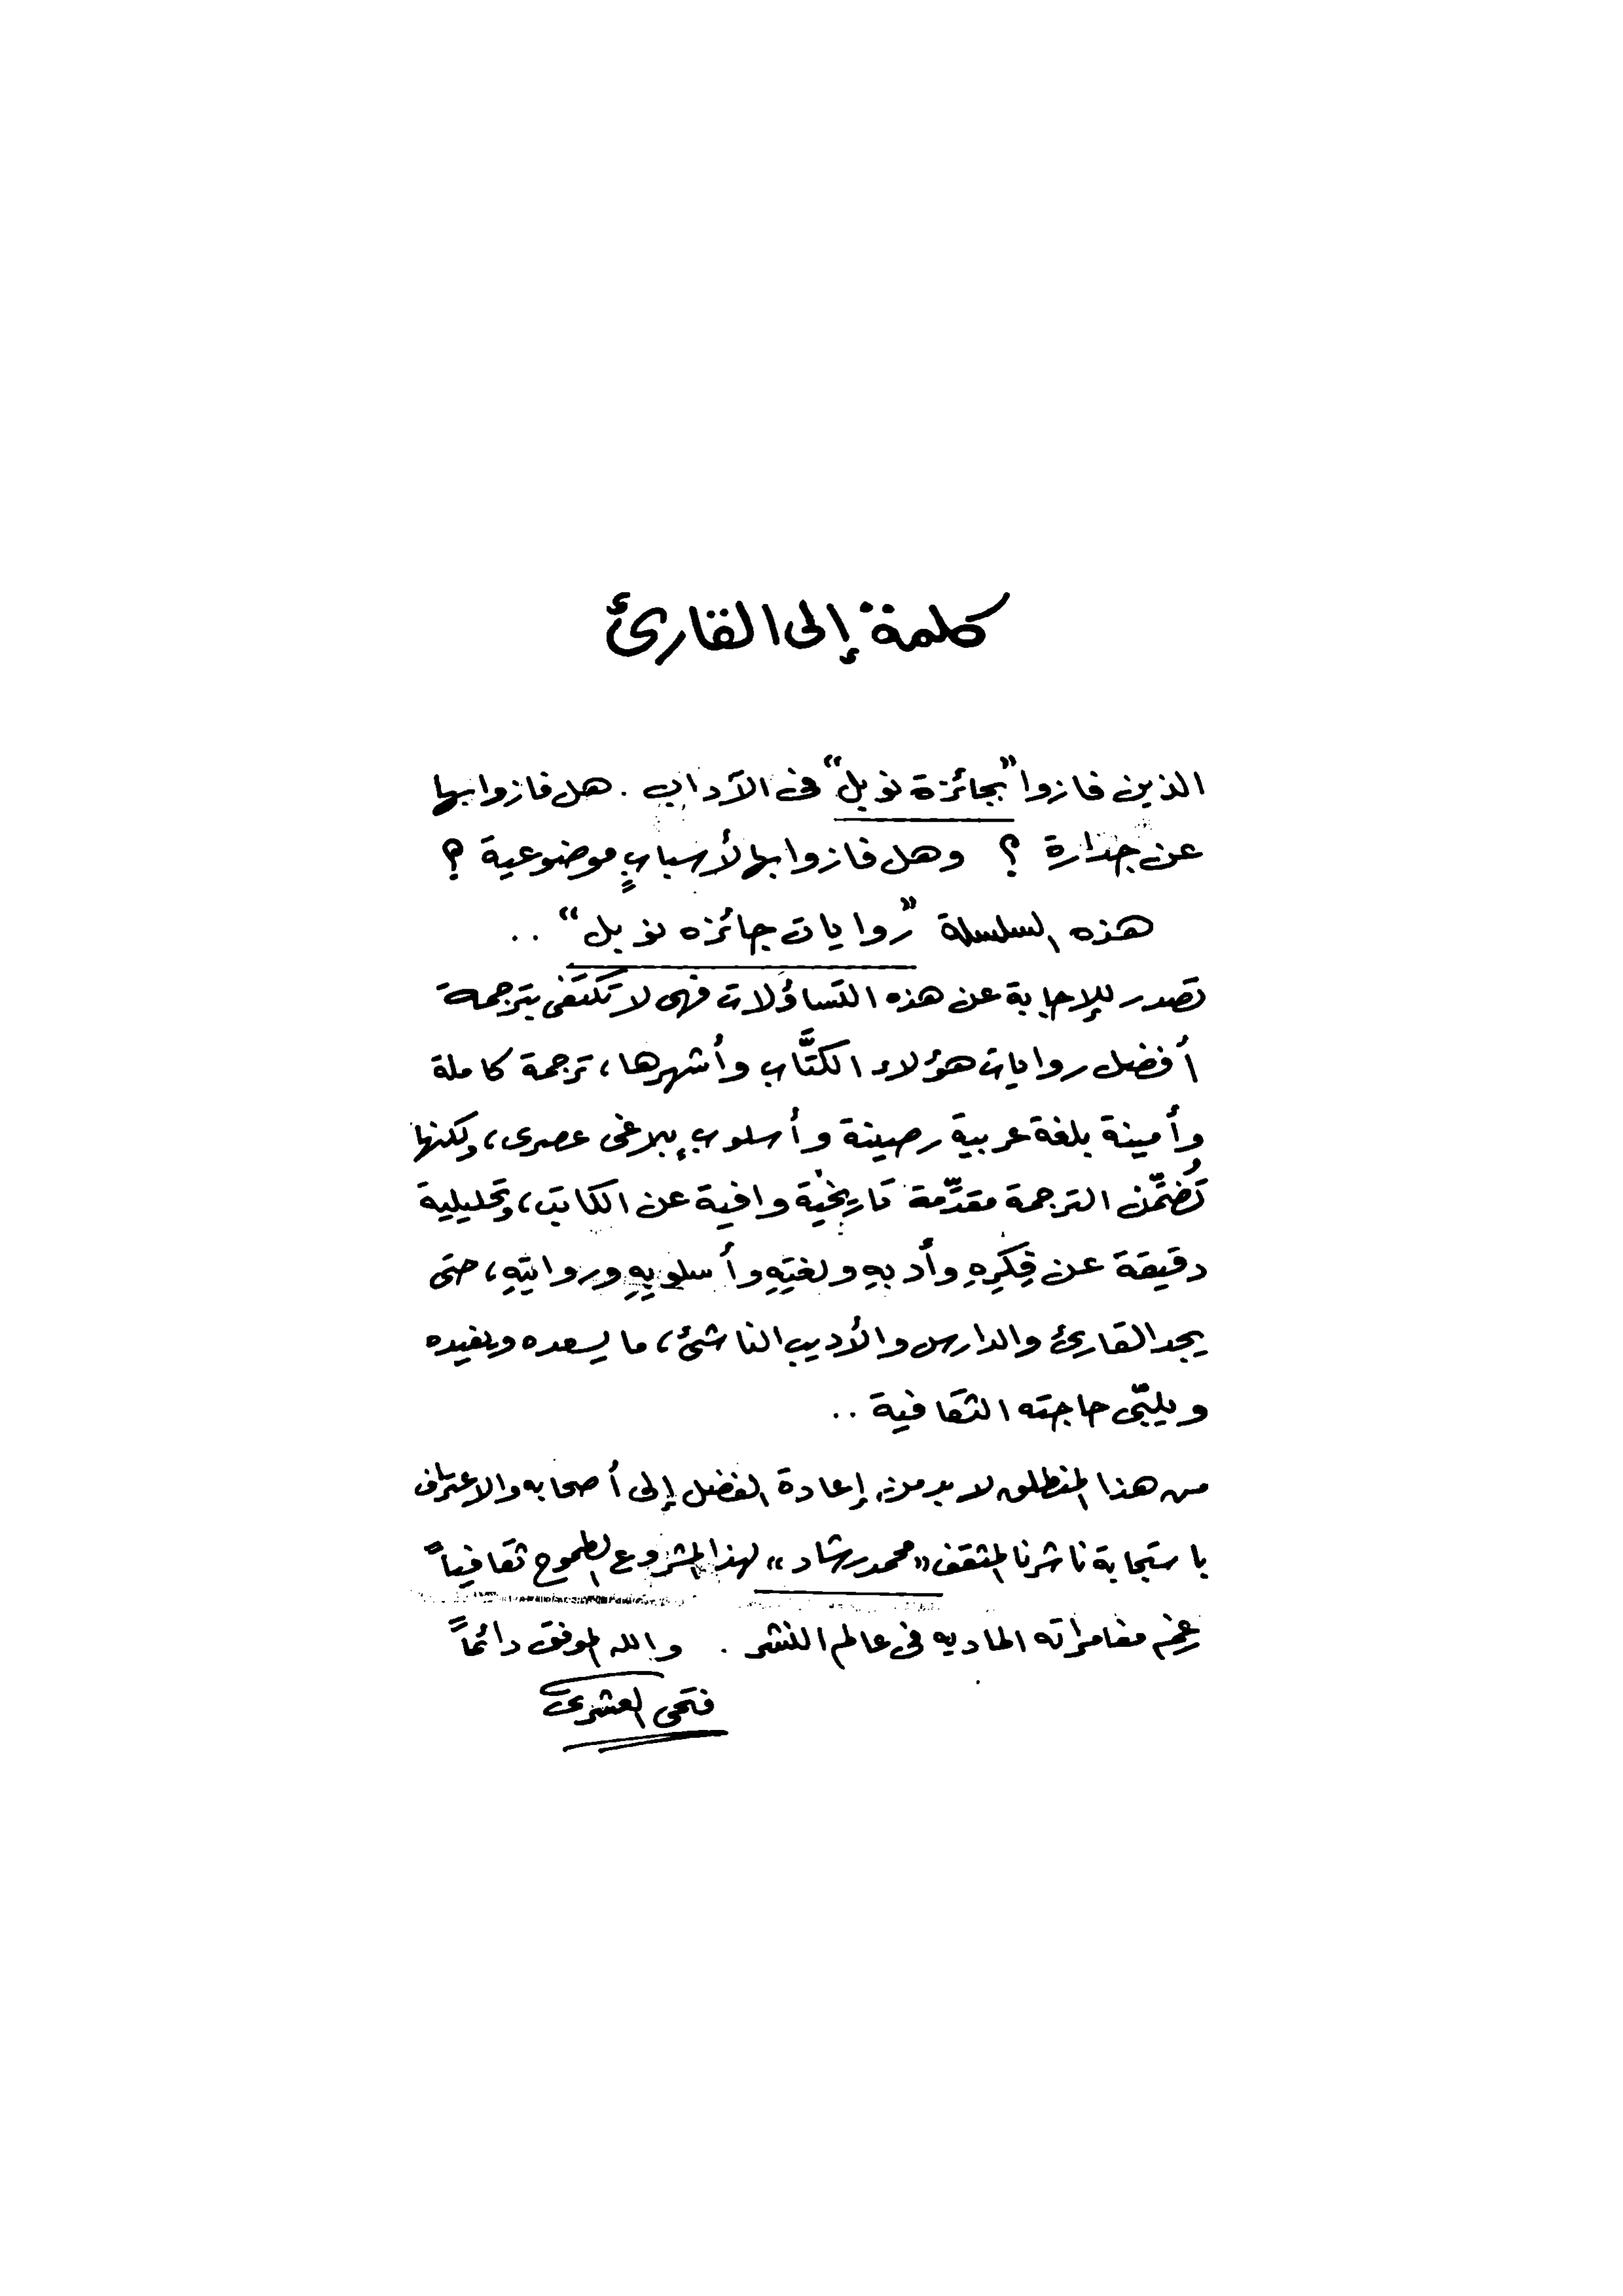 كلمة إلى القارئ
الذين فازوا "بجائزة نوبل" فى الآداب . هل فازوا بها
عن جدارة ؟ وهل فازوا بها لأسبابٍ موضوعية ؟
هذه السلسلة "روايات جائزه نوبل" ..
تصدر للإجابة عن هذه التساؤلات فهى لا تكتفى بترجمة
أفضل روايات هؤلاء الكتَّاب وأشهرها، ترجمة كاملة
وأمينة بلغة عربية رصينة وأسلوبٍ بلاغى عصرى، ولكنها
تُضمِّن الترجمة مقدِّمة تاريخية وافية عن الكاتب، وتحليلية
دقيقة عن فِكرِهِ وأدبهِ ولغتِهِ وأسلوبِهِ وروايتِهِ، حتى
يجد القارئ والدارس والأديب الناشئ، ما يسعده ويفيده
ويلبّى حاجته الثقافية ..
من هذا المنطلق لا بد من إعادة الفضل إلى أصحابه والاعتراف
باستجابة ناشرنا المثقف «محمد رشاد» لهذا المشروع الطموح ثقافياً
رغم مغامراته الماديه فى عالم النشر . والله الموفق دائماً
فتحى العشرى